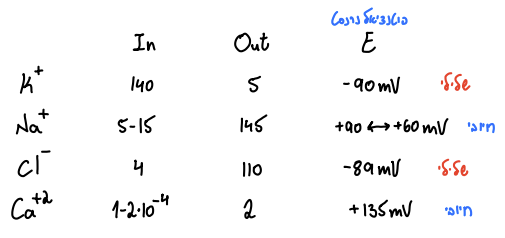 פוטנציאל נרנסט
In Out E
K+ 140 5 -90mV שלילי
Na+ 5-15 145 +90 ↔ +60mV חיובי
Cl- 4 110 -89mV שלילי
Ca+2 1-2·10^-4 2 +135mV חיובי